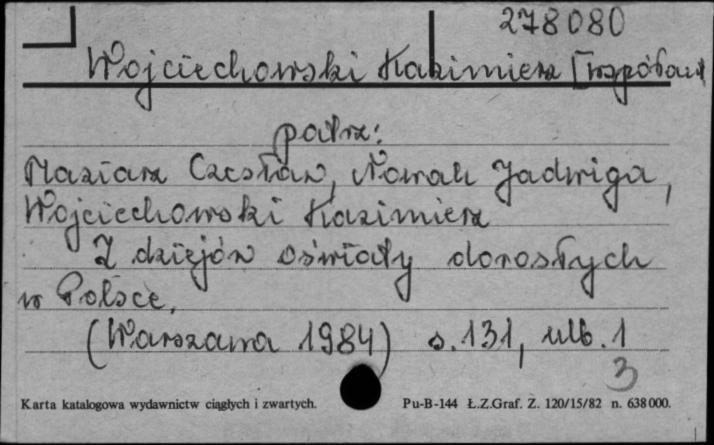 278080
Wojciechowski Kazimierz [współaut
patrz:
Maziarz Czesław, Nowak Jadwiga,
Wojciechowski Kazimierz
Z dziejów oświaty dorosłych
w Polsce,
(Warszawa 1984) s. 131, nlb. 1
3
Karta katalogowa wydawnictw ciągłych i zwartych. Pu-B-144 Ł.Z.Graf. Z. 120/15/82 n. 638000.